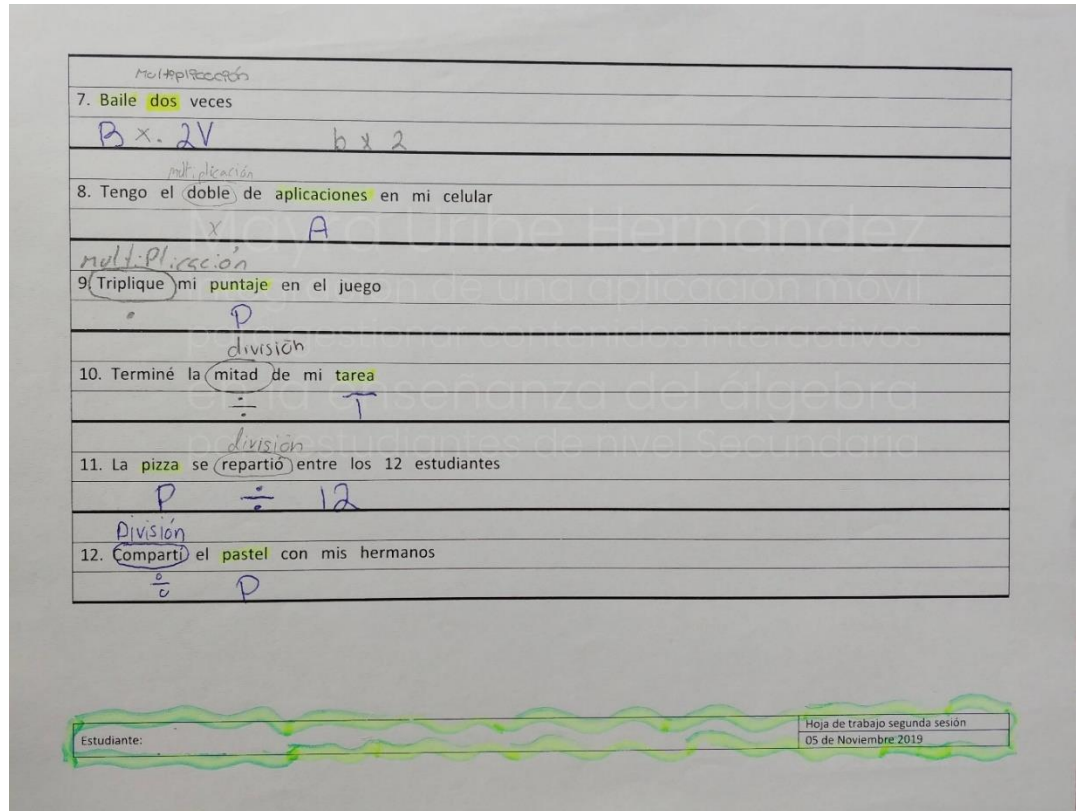 Multiplicación
7. Baile dos veces
B x. 2V b x 2
multiplicación
8. Tengo el doble de aplicaciones en mi celular
x A
multiplicación
9. Triplique mi puntaje en el juego
• P
división
10. Terminé la mitad de mi tarea
÷ T
división
11. La pizza se repartió entre los 12 estudiantes
P ÷ 12
División
12. Compartí el pastel con mis hermanos
÷ P
Mayra Uribe Hernández
Integración de una aplicación móvil
para gestionar contenidos interactivos
en la enseñanza del álgebra
para estudiantes de nivel Secundaria
Estudiante:
Hoja de trabajo segunda sesión
05 de Noviembre 2019